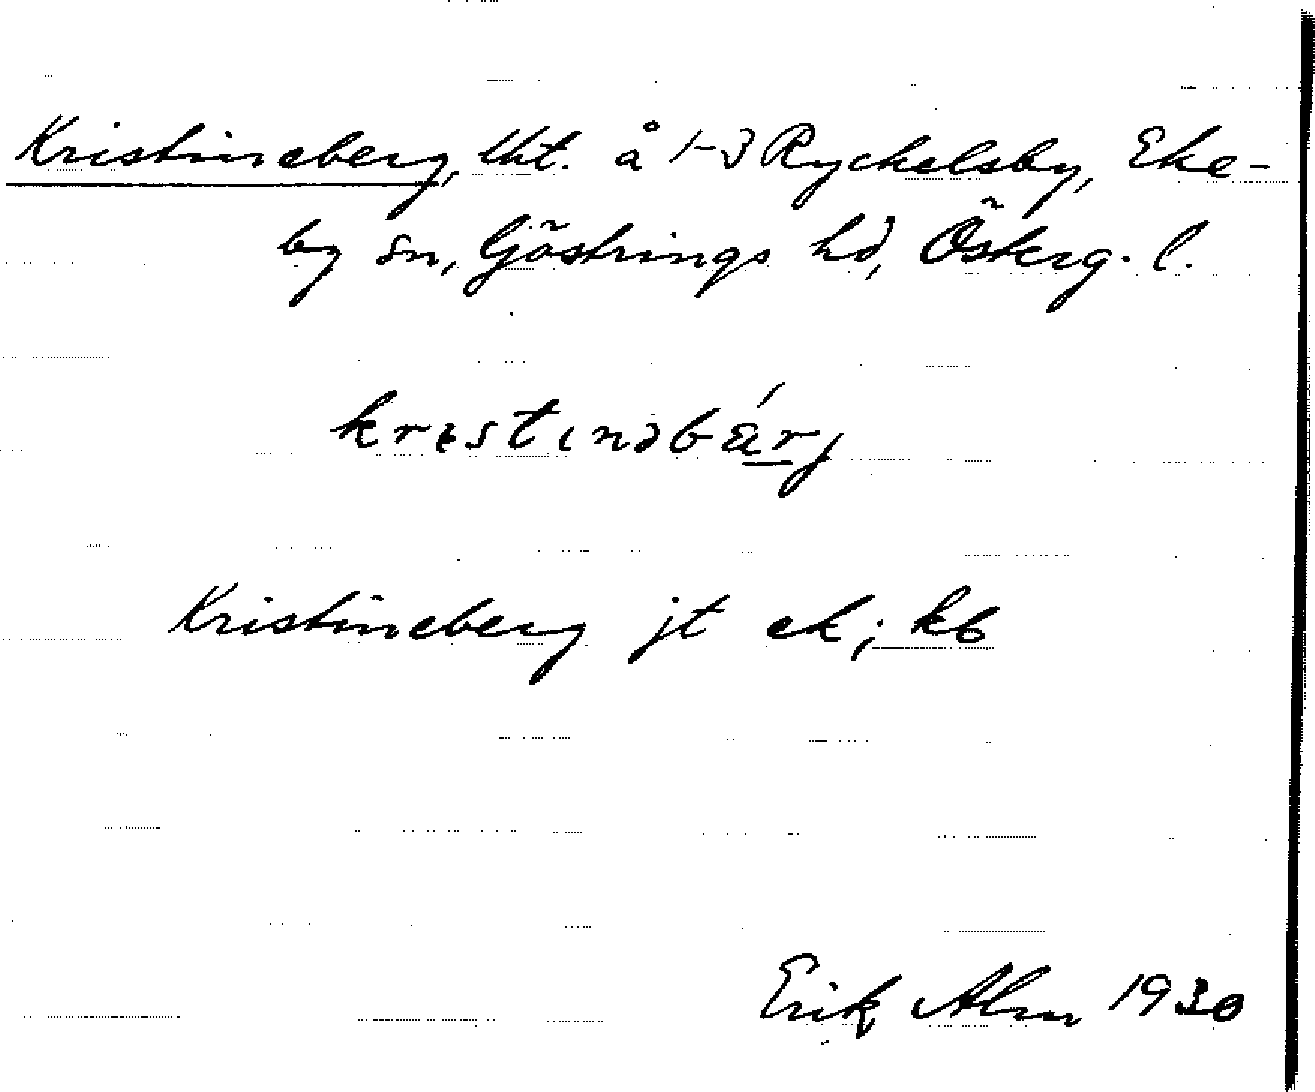 Kristineberg, lht. å 1-3 Ryckelsby, Eke-
by sn, Göstrings hd, Österg. l.
krestinəbärj
Kristineberg jt ek; kb
Erik Alm 1930